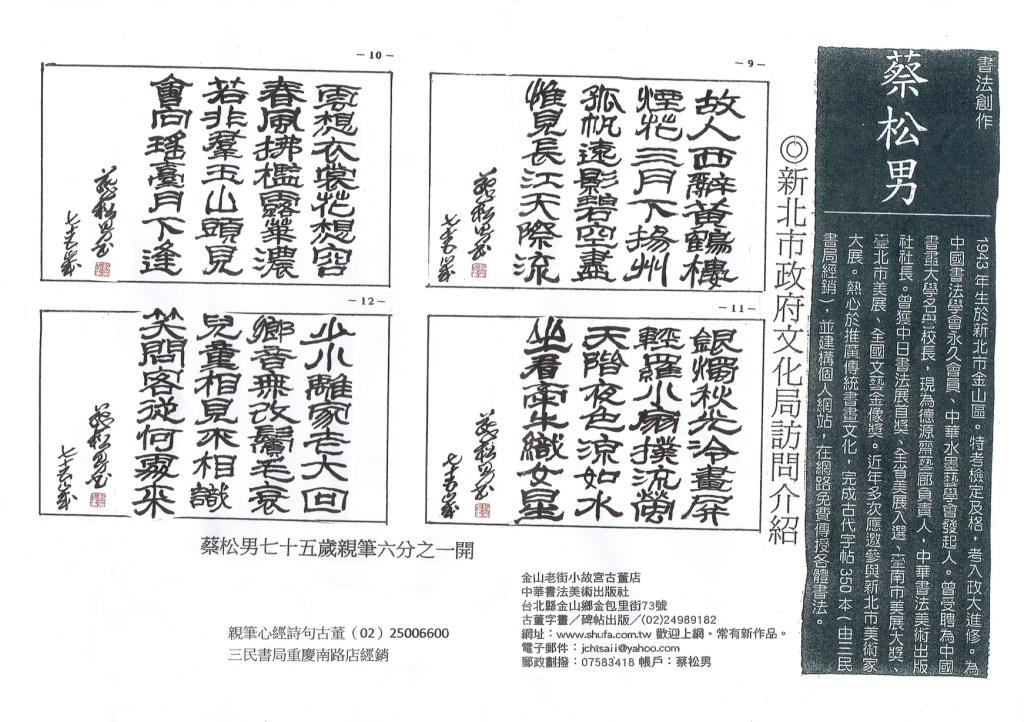 書法創作
蔡松男
1943 年生於新北市金山區。特考檢定及格，考入政大進修。為
中國書法學會永久會員、中華水墨藝學會發起人。曾受聘為中國
書畫大學名譽校長，現為德源齋藝廊負責人，中華書法美術出版
社社長。曾獲中日書法展首獎、全省美展入選、臺南市美展大獎、
臺北市美展、全國文藝金像獎。近年多次應邀參與新北市美術家
大展。熱心於推廣傳統書畫文化，完成古代字帖 350 本（由三民
書局經銷），並建構個人網站，在網路免費傳授各體書法。
◎新北市政府文化局訪問介紹
－9－
故人西辭黃鶴樓
煙花三月下揚州
孤帆遠影碧空盡
惟見長江天際流
蔡松男書
七十五歲
－10－
雲想衣裳花想容
春風拂檻露華濃
若非羣玉山頭見
會向瑤臺月下逢
蔡松男書
七十五歲
－11－
銀燭秋光冷畫屏
輕羅小扇撲流螢
天階夜色涼如水
坐看牽牛織女星
蔡松男書
七十五歲
－12－
少小離家老大回
鄉音無改鬢毛衰
兒童相見不相識
笑問客從何處來
蔡松男書
七十五歲
蔡松男七十五歲親筆六分之一開
金山老街小故宮古董店
中華書法美術出版社
台北縣金山鄉金包里街73號
古董字畫／碑帖出版／(02)24989182
網址：www.shufa.com.tw 歡迎上網。常有新作品。
電子郵件：jchtsaii@yahoo.com
郵政劃撥：07583418 帳戶：蔡松男
親筆心經詩句古董（02）25006600
三民書局重慶南路店經銷